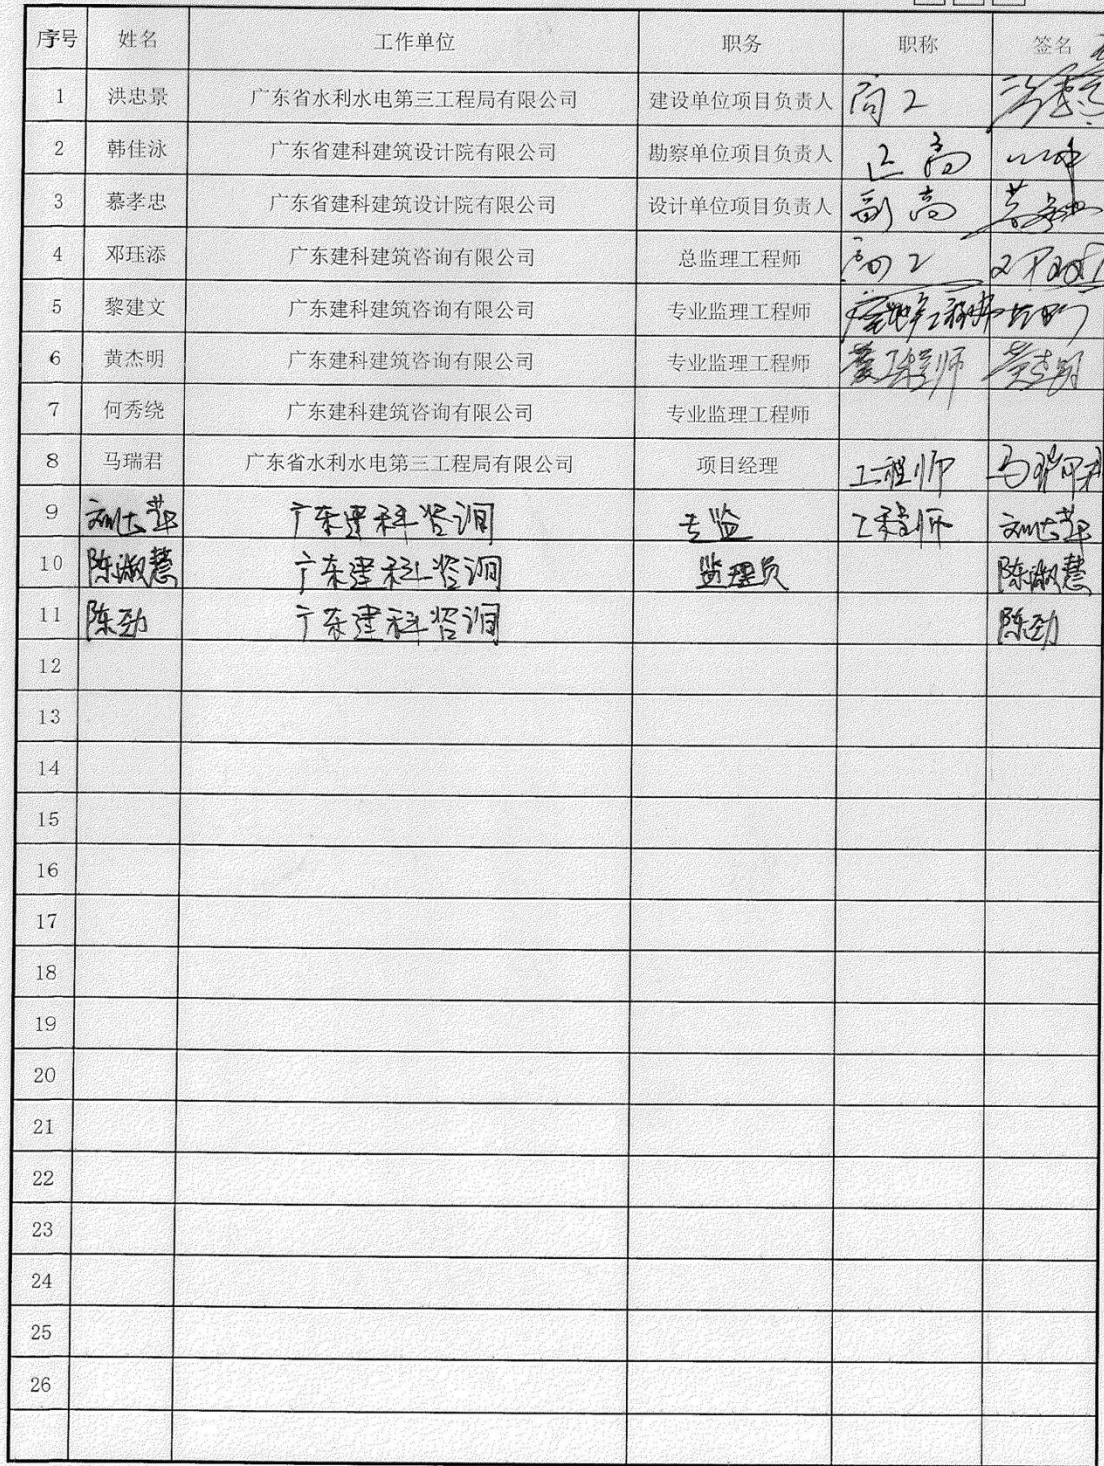 序号 姓名 工作单位 职务 职称 签名
1 洪忠景 广东省水利水电第三工程局有限公司 建设单位项目负责人 高工
2 韩佳泳 广东省建科建筑设计院有限公司 勘察单位项目负责人 正高
3 慕孝忠 广东省建科建筑设计院有限公司 设计单位项目负责人 副高 慕孝忠
4 邓珏添 广东建科建筑咨询有限公司 总监理工程师 高工
5 黎建文 广东建科建筑咨询有限公司 专业监理工程师
6 黄杰明 广东建科建筑咨询有限公司 专业监理工程师 工程师 黄杰明
7 何秀绕 广东建科建筑咨询有限公司 专业监理工程师
8 马瑞君 广东省水利水电第三工程局有限公司 项目经理 工程师 马瑞君
9 广东建科咨询 专监 工程师
10 陈淑慧 广东建科咨询 监理员 陈淑慧
11 陈劲 广东建科咨询 陈劲
12
13
14
15
16
17
18
19
20
21
22
23
24
25
26